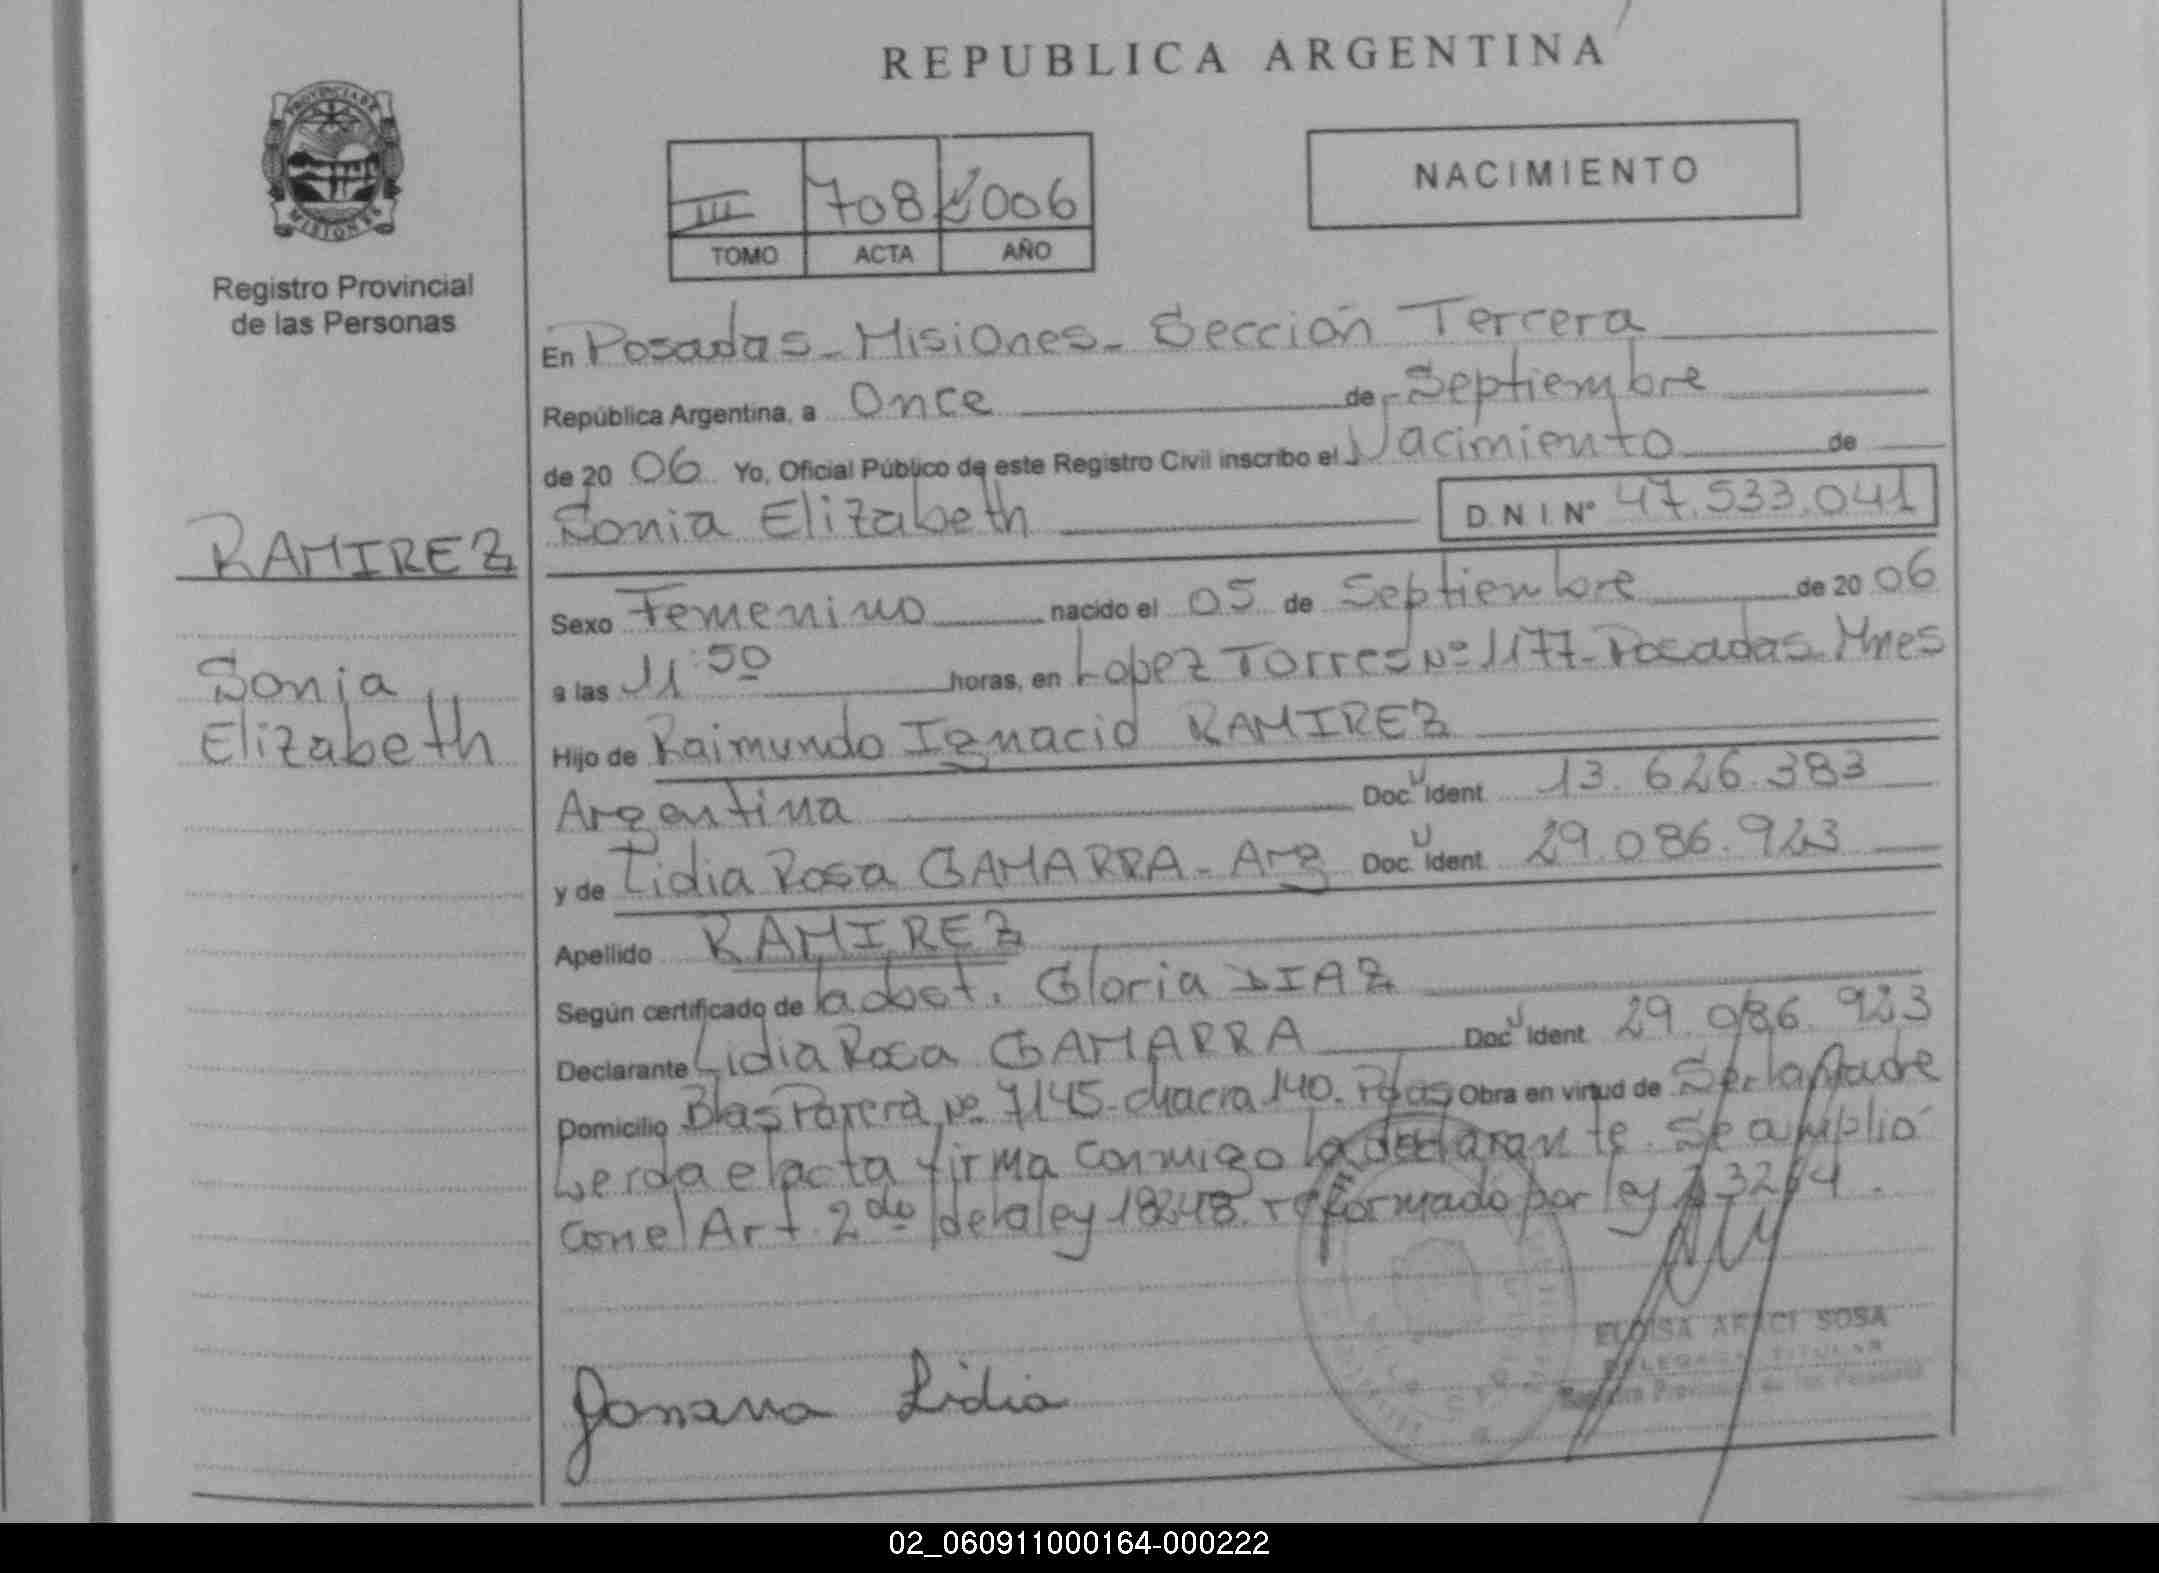 REPUBLICA ARGENTINA
PROVINCIA DE
MISIONES
Registro Provincial
de las Personas
III 708 2006
TOMO ACTA AÑO
NACIMIENTO
En Posadas - Misiones - Sección Tercera
República Argentina, a Once de Septiembre
de 20 06 Yo, Oficial Público de este Registro Civil inscribo el Nacimiento de
Sonia Elizabeth D N I Nº 47.533.041
RAMIREZ
Sonia
Elizabeth
Sexo Femenino nacido el 05 de Septiembre de 20 06
a las 11:50 horas, en Lopez Torres Nº 1177 - Posadas Mnes
Hijo de Raimundo Ignacio RAMIREZ
Argentina Doc. U Ident 13.626.383
y de Lidia Rosa GAMARRA - Arg Doc. U Ident 29.086.923
Apellido RAMIREZ
Según certificado de la obst. Gloria DIAZ
Declarante Lidia Rosa GAMARRA Doc U Ident 29.086.923
Domicilio Blas Parera Nº 7145 - chacra 140. Pdas Obra en virtud de Ser la Madre
Leida el acta firma conmigo la declarante. Se amplio
con el Art. 2do de la ley 18248. reformado por ley 23264.
Lidia
ELOISA ARACI SOSA
DELEGADA TITULAR
Registro Provincial de las Personas
02_060911000164-000222